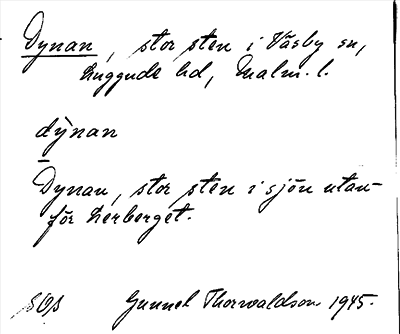 Dynan, stor sten i Väsby sn,
Luggude hd, Malm. l.
dy̆nan
Dynan, stor sten i sjön utan-
för herberget.
Gunnel Thorwaldson 1945.